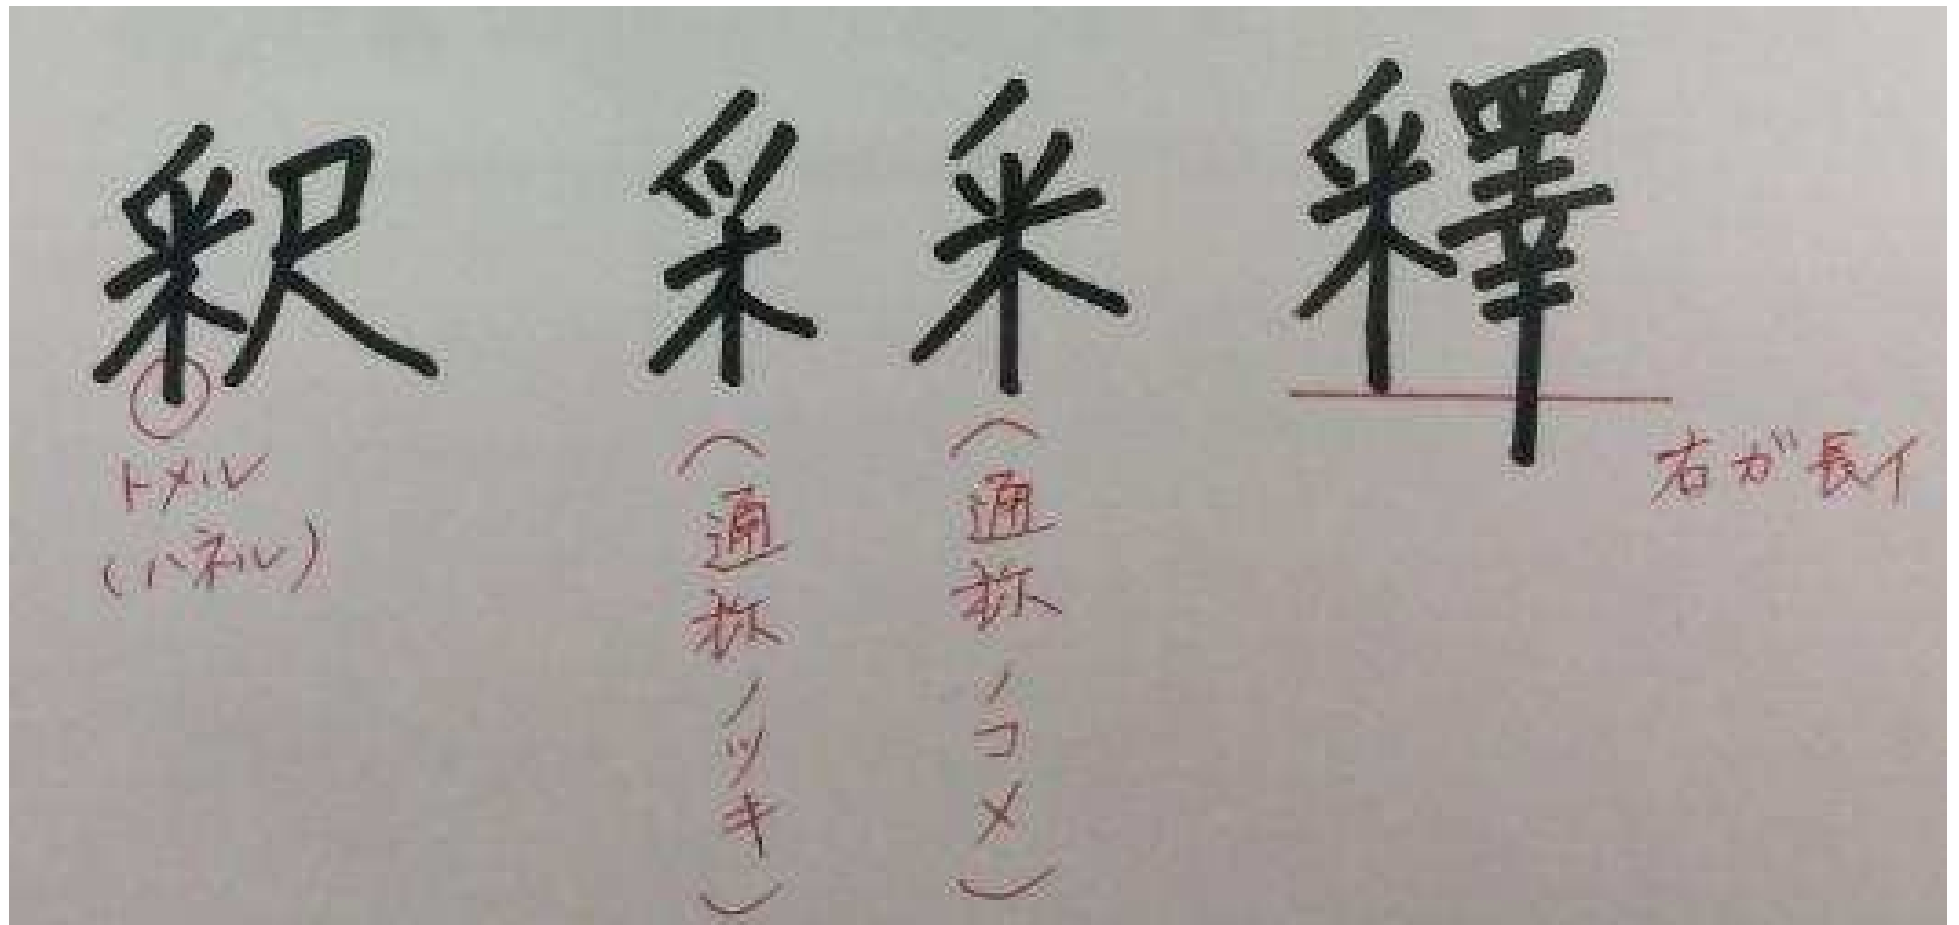 釈
トメル
(ハネル)
采
(通称ノツキ)
釆
(通称ノコメ)
釋
右が長イ